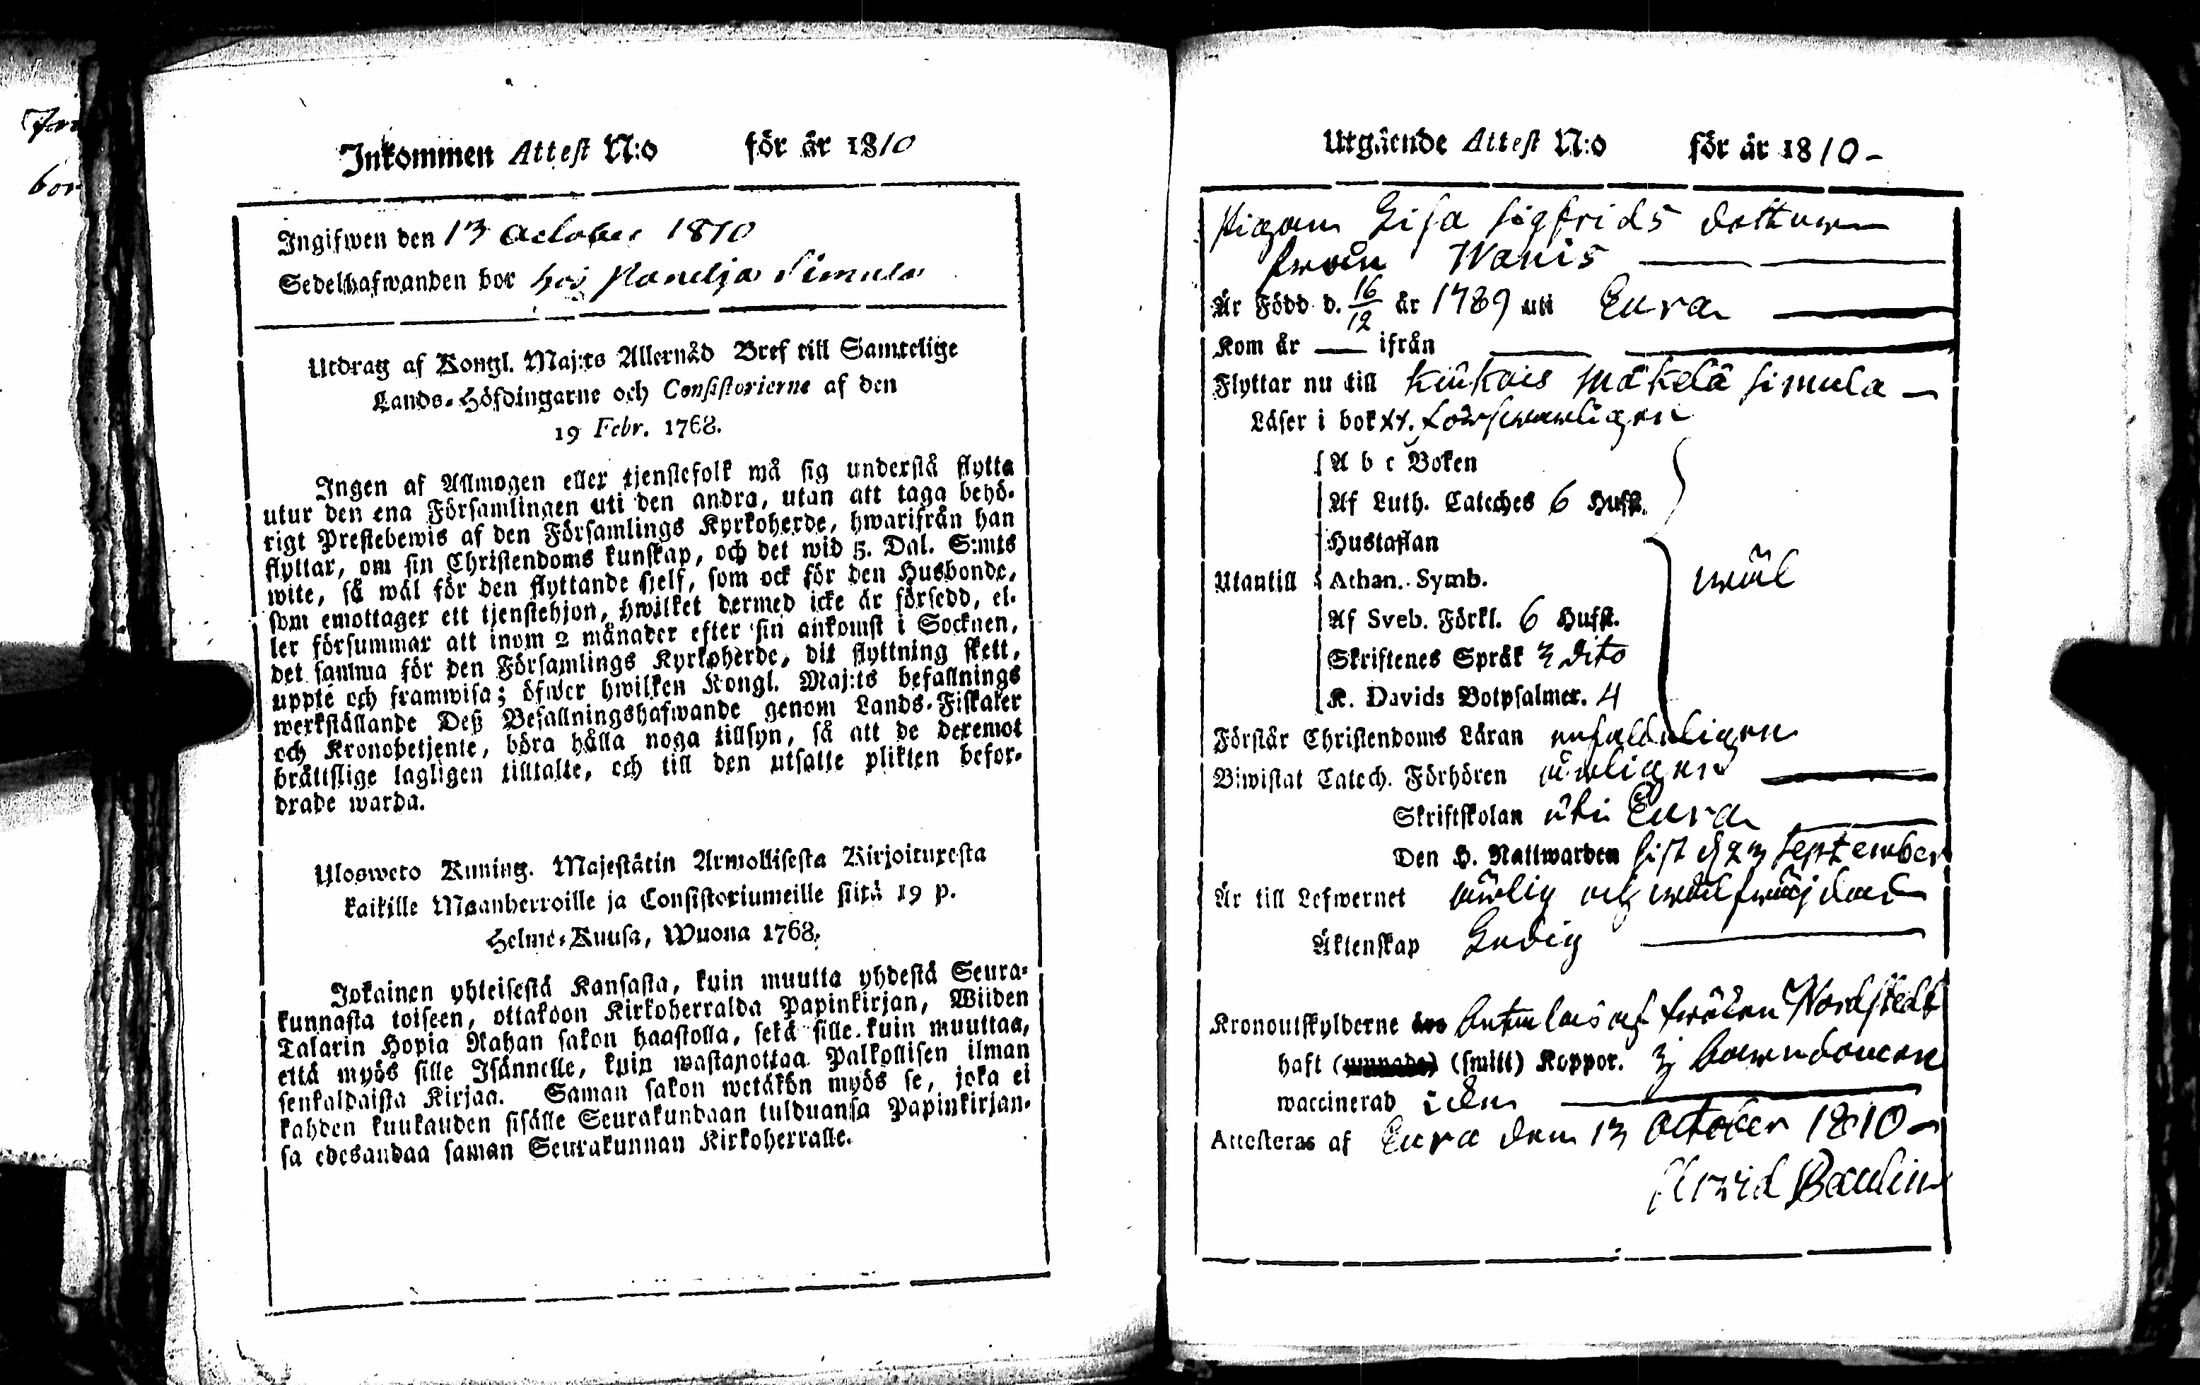 Inkommen Attest N:o för år 1810
Ingifwen den 13 October 1810
Sedelhafwanden bor hos Simula
Utdrag af Kongl. Maj:ts Allernåd Bref till Samtelige
Lands-Höfdingarne och Consistorierne af den
19 Febr. 1768.
Ingen af Allmogen eller tjenstefolk må sig understå flytta
utur den ena Församlingen uti den andra, utan att taga behö-
rigt Prestebewis af den Församlings Kyrkoherde, hwarifrån han
flyttar, om sin Christendoms kunskap, och det wid 5. Dal. S:mts
wite, så wäl för den flyttande sjelf, som ock för den Husbonde,
som emottager ett tjenstehjon, hwilket dermed icke är försedd, el-
ler försummar att inom 2 månader efter sin ankomst i Socknen,
det samma för den Församlings Kyrkoherde, dit flyttning skett,
uppte och framwisa; öfwer hwilken Kongl. Maj:ts befallnings
werkställande Deß Befallningshafwande genom Lands-Fiskaler
och Kronobetjente, böra hålla noga tillsyn, så att de deremot
brättslige lagligen tilltalte, och till den utsatte plikten befor-
drade warda.
Ulosweto Kuning. Majestätin Armollisesta Kirjoituxesta
kaikille Maanherroille ja Consistoriumeille siitä 19 p.
Helme-Kuusa, Wuona 1768.
Jokainen yhteisestä Kansasta, kuin muutta yhdestä Seura-
kunnasta toiseen, ottakoon Kirkoherralda Papinkirjan, Wiiden
Talarin Hopia Rahan sakon haastolla, sekä sille kuin muuttaa,
että myös sille Isännelle, kuin wastanottaa Palkollisen ilman
senkaldaista Kirjaa. Saman sakon wetäkön myös se, joka ei
kahden kuukauden sisälle Seurakundaan tulduansa Papinkirjan-
sa edesandaa saman Seurakunnan Kirkoherralle.
Utgående Attest N:o för år 1810 -
Pigan Lisa Sigfrids dotter
från Wanis
Är Född d. 16/12 år 1789 uti Eura
Kom år — ifrån
Flyttar nu till Kiukais Mäkelä Simula -
Läser i bok
Utantill
A b c Boken
Af Luth. Cateches 6 Hufst.
Hustaflan
Athan. Symb.
Af Sveb. Förkl. 6 Hufst.
Skriftenes Språk 3 dito
K. Davids Botpsalmer. 4
wäl
Förstår Christendoms Läran enfaldeligen
Biwistat Catech. Förhören årligen
Skriftskolan uti Eura
Den H. Nattwarden sist d 23 September
Är till Lefwernet ärlig och wälfräjdad
Äktenskap Ledig
Kronoutskylderne betalas af fröken Nordstedt
haft (smitt) Koppor. i barndomen
waccinerad
Attesteras af Eura den 13 October 1810 -
Arvid Paulin